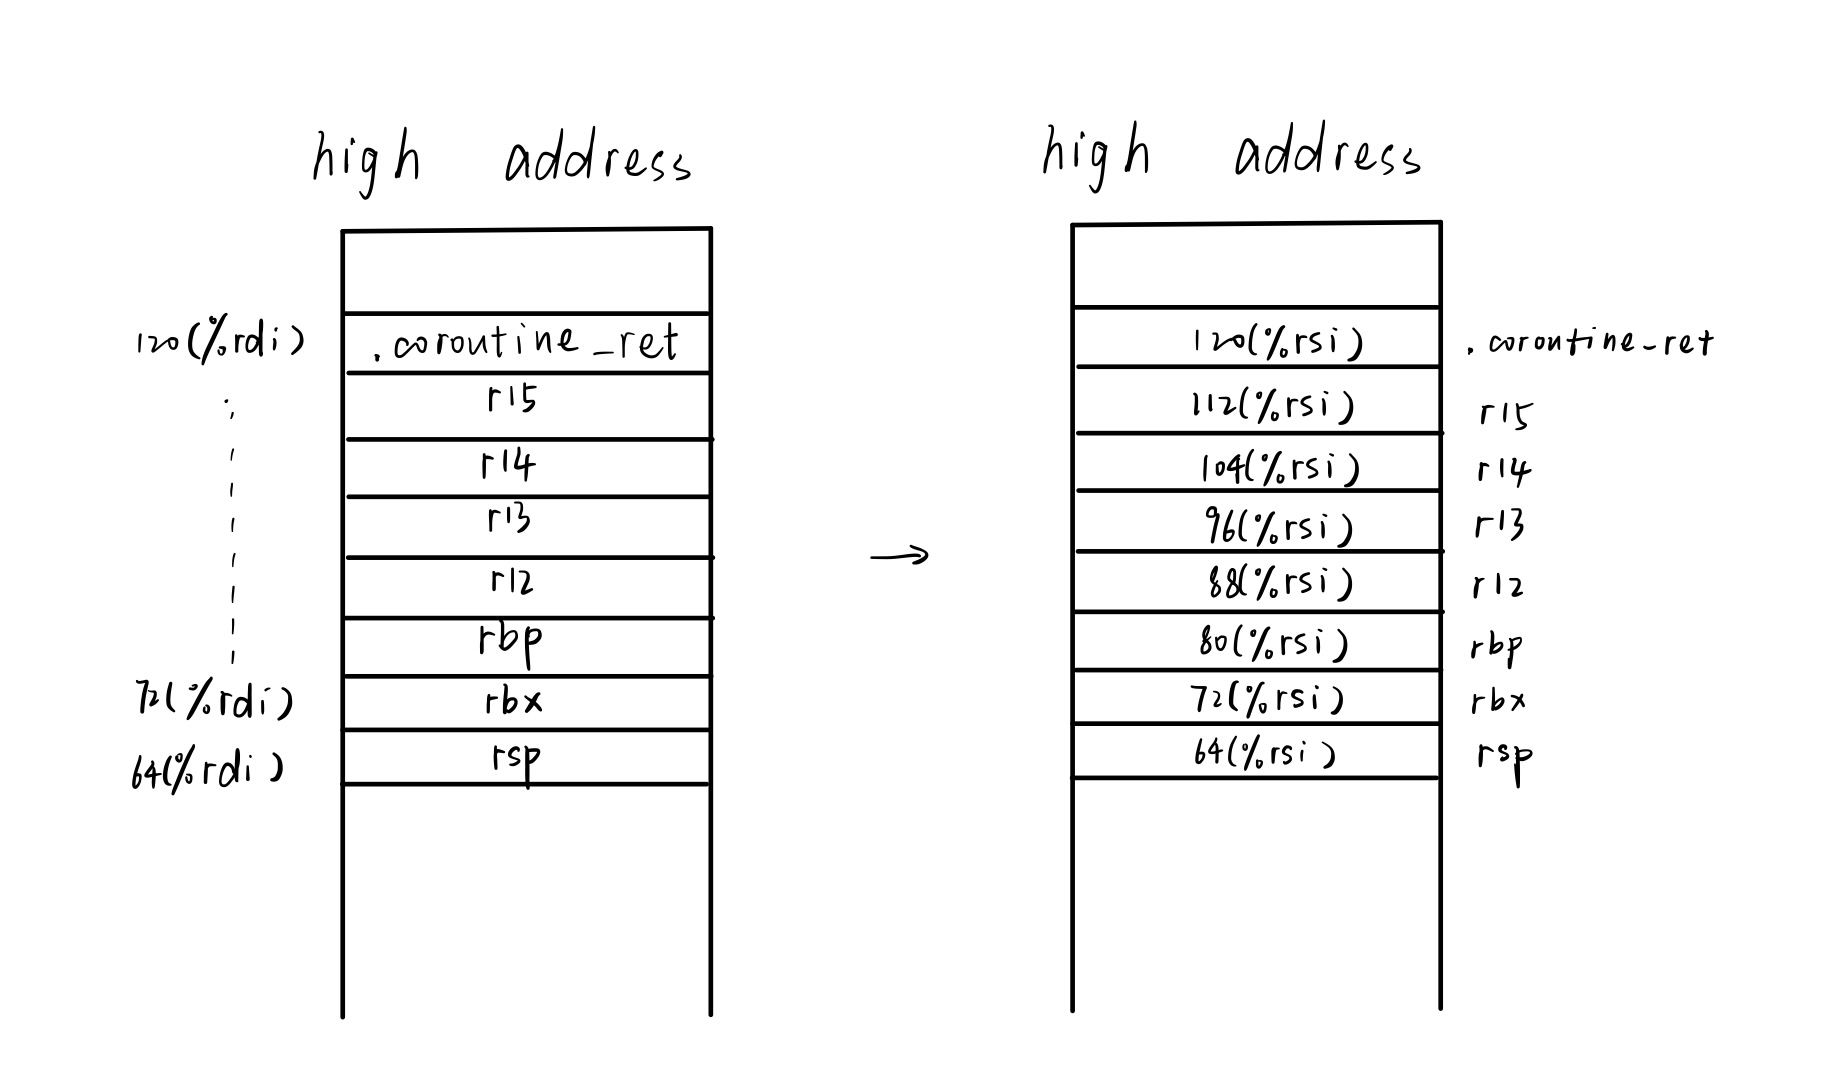 high address
120(%rdi)
.coroutine_ret
r15
r14
r13
r12
rbp
72(%rdi)
rbx
64(%rdi)
rsp
high address
120(%rsi)
.coroutine_ret
112(%rsi)
r15
104(%rsi)
r14
96(%rsi)
r13
88(%rsi)
r12
80(%rsi)
rbp
72(%rsi)
rbx
64(%rsi)
rsp